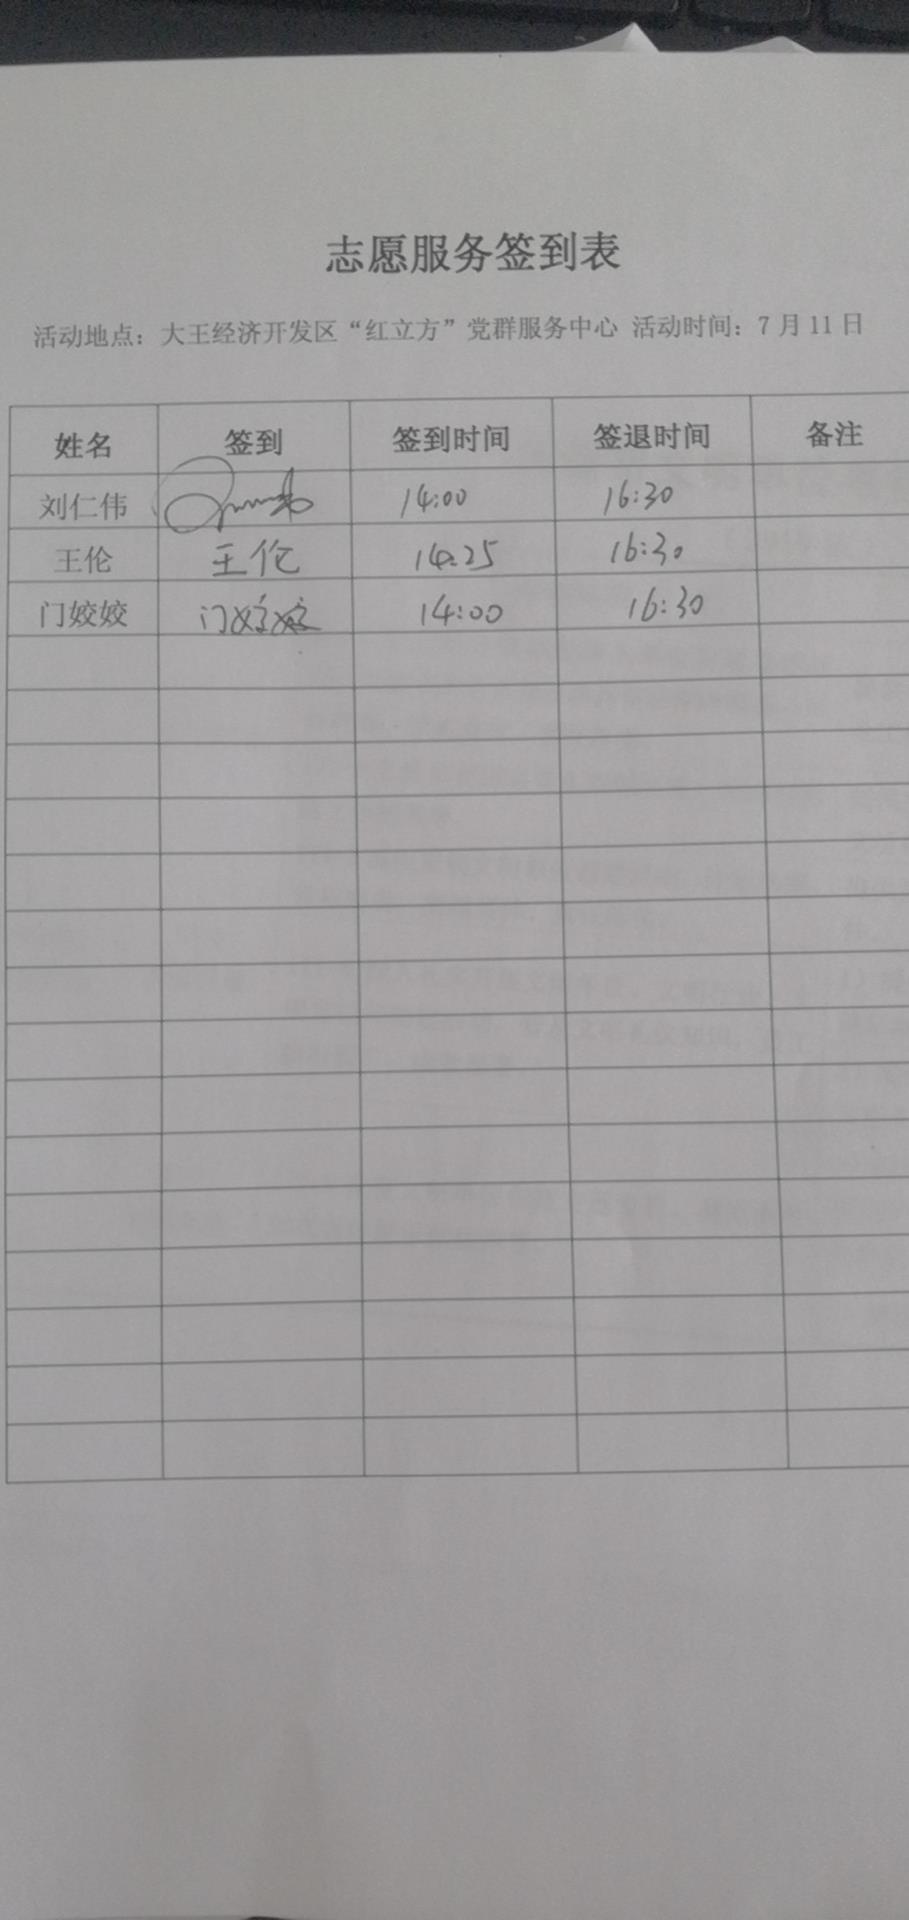 志愿服务签到表
活动地点：大王经济开发区“红立方”党群服务中心 活动时间：7月11日
姓名 签到 签到时间 签退时间 备注
刘仁伟 14:00 16:30
王伦 王伦 14:25 16:30
门姣姣 门姣姣 14:00 16:30